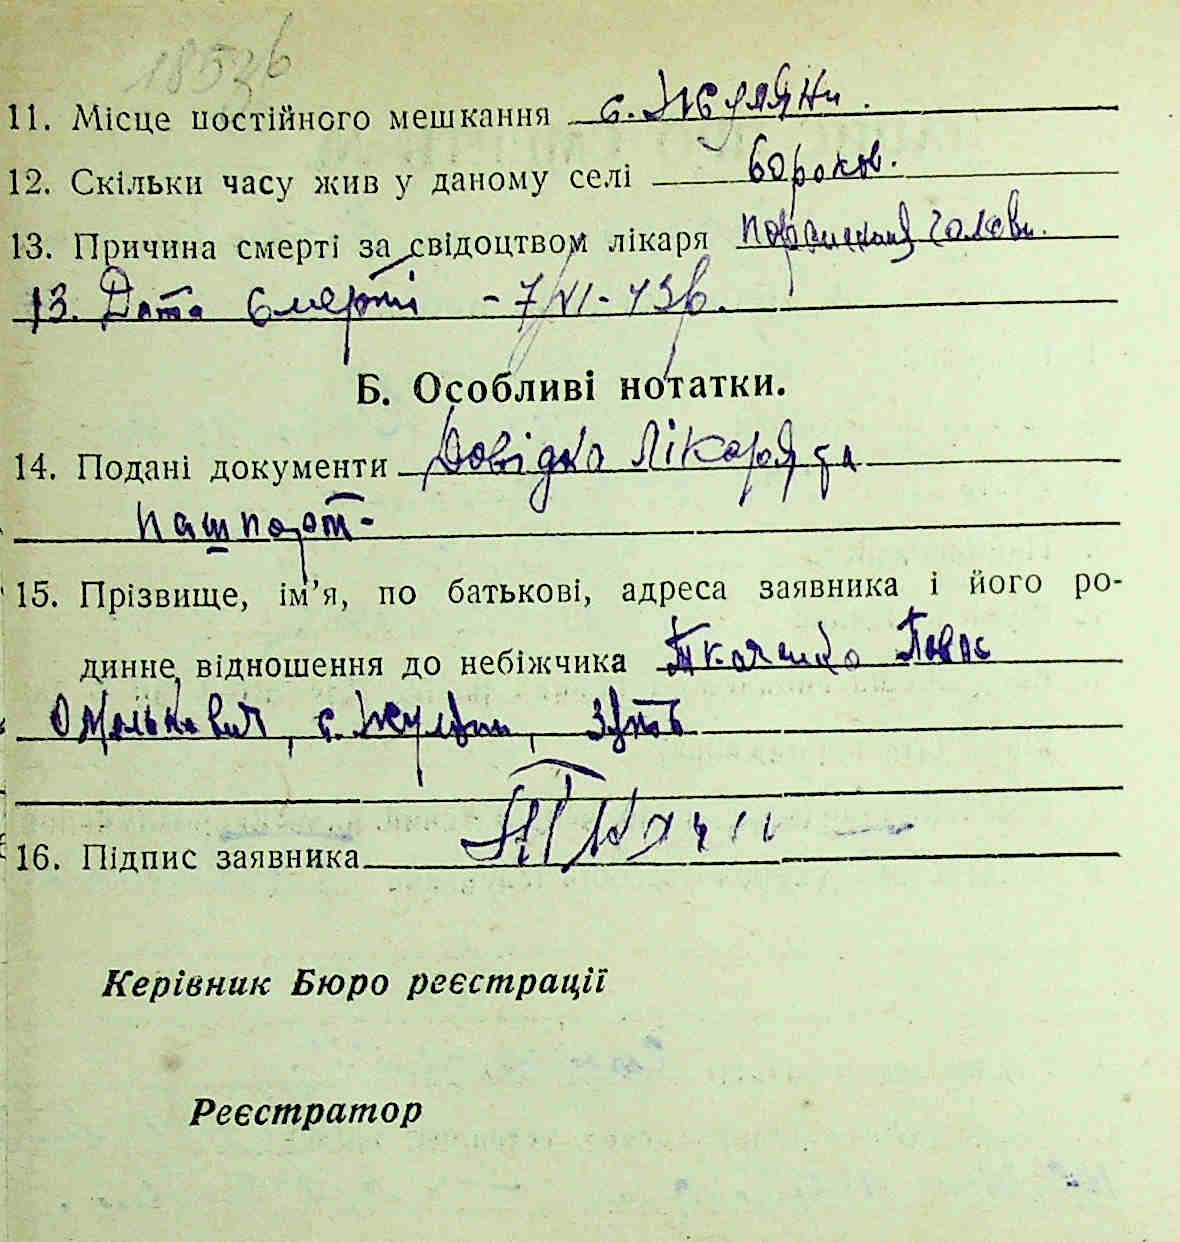 11. Місце постійного мешкання с. Жуляни.
12. Скільки часу жив у даному селі 60 роков.
13. Причина смерті за свідоцтвом лікаря голови.
13. Дата смерті - 7/VI - 43 в.
Б. Особливі нотатки.
14. Подані документи Довідка лікаря та
пашпорт-
15. Прізвище, ім’я, по батькові, адреса заявника і його ро-
динне відношення до небіжчика Ткаченко Павло
Омелькович, с. Жуляни, зять
16. Підпис заявника
Керівник Бюро реєстрації
Реєстратор